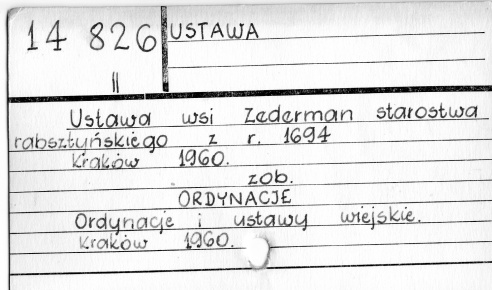 14 826 USTAWA
II
Ustawa wsi Zederman starostwa
rabsztyńskiego z r. 1694
Kraków 1960.
zob.
ORDYNACJE
Ordynacje i ustawy wiejskie.
Kraków 1960.